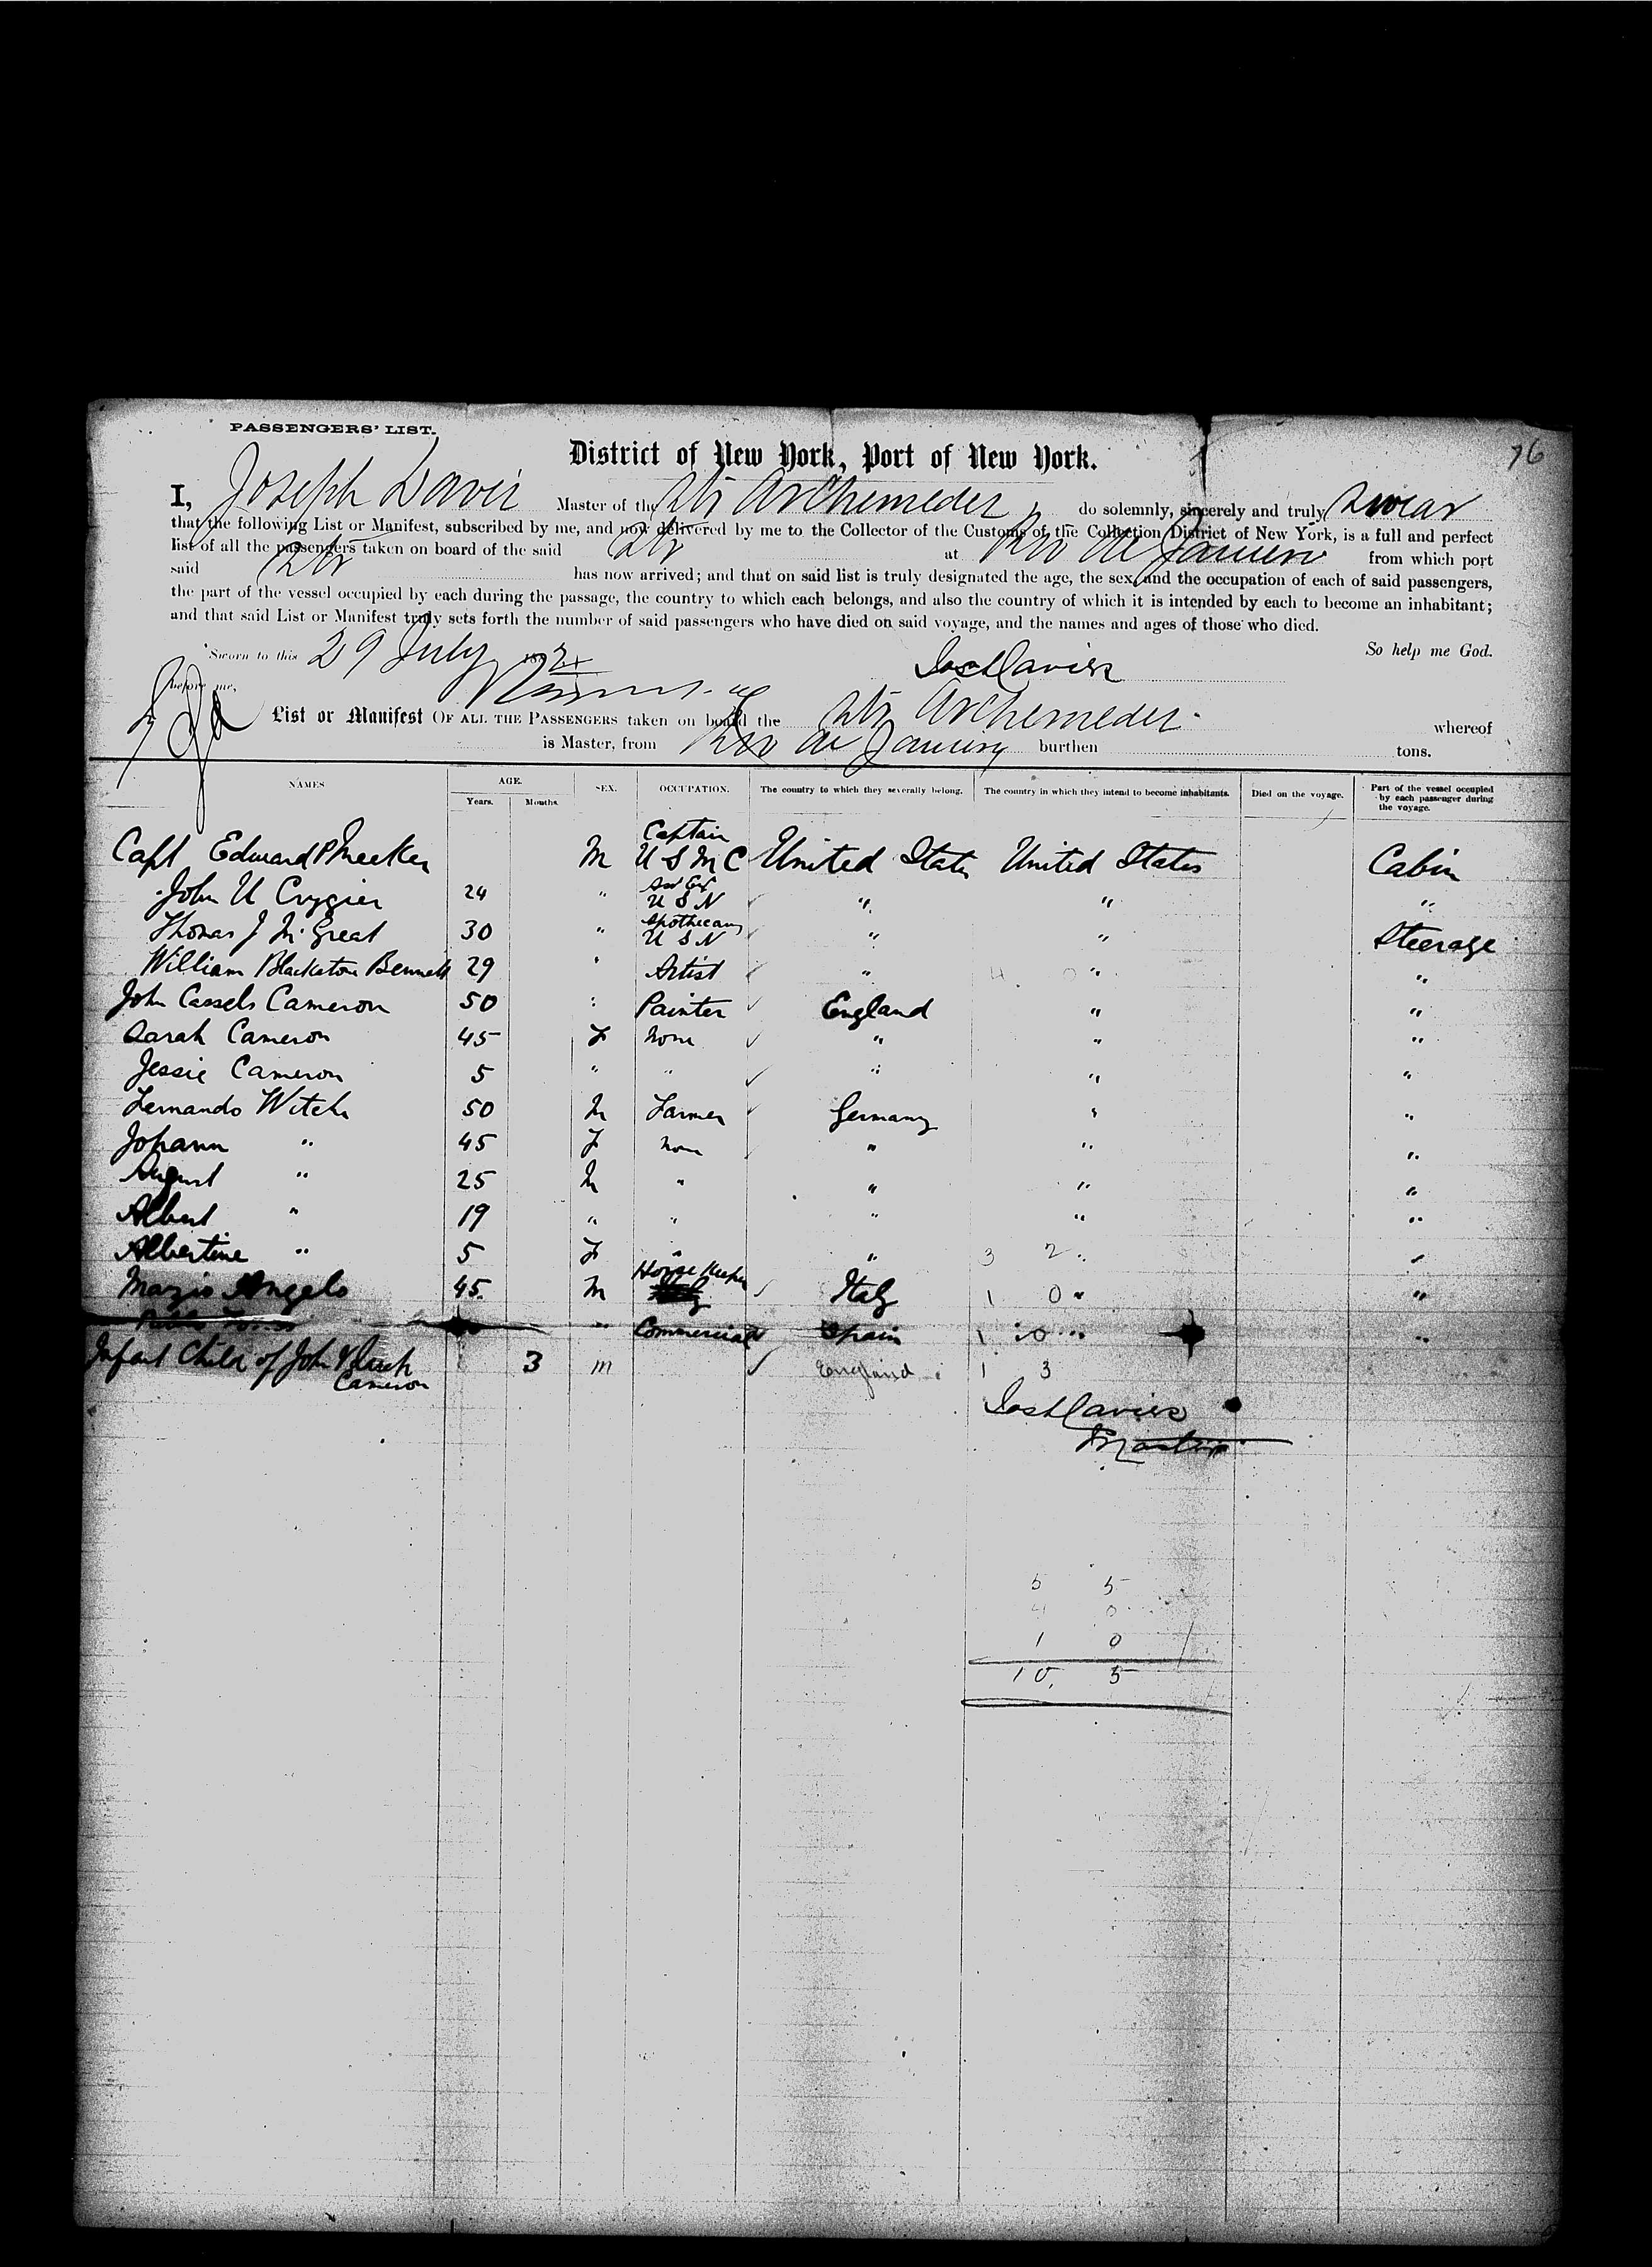 PASSENGERS' LIST.
76
District of New York, Port of New York.
I, Joseph Davis Master of the Str Archemedes do solemnly, sincerely and truly swear
that the following List or Manifest, subscribed by me, and now delivered by me to the Collector of the Customs of the Collection District of New York, is a full and perfect
list of all the passengers taken on board of the said Str at Rio de Janeiro from which port
said Str has now arrived; and that on said list is truly designated the age, the sex, and the occupation of each of said passengers,
the part of the vessel occupied by each during the passage, the country to which each belongs, and also the country of which it is intended by each to become an inhabitant;
and that said List or Manifest truly sets forth the number of said passengers who have died on said voyage, and the names and ages of those who died.
Sworn to this 29 July 188 So help me God.
Jos Davies
before me,
List or Manifest OF ALL THE PASSENGERS taken on board the Str Archemedes whereof
is Master, from Rio de Janeiro burthen tons.
NAMES AGE. Years. Months. SEX. OCCUPATION. The country to which they severally belong. The country in which they intend to become inhabitants. Died on the voyage. Part of the vessel occupied by each passenger during the voyage.
Capt Edward P Meeker M Captain U S M C United States United States Cabin
John U 24 " U S N " " "
Thomas J 30 " Apothecary U S N " " Steerage
William Blackstone Bennett 29 " Artist " 4 0 " "
John Cassels Cameron 50 " Painter England " "
Sarah Cameron 45 F None " " "
Jessie Cameron 5 " " " " "
Fernando Witch 50 M Farmer Germany " "
Johann " 45 F None " " "
August " 25 M " " " "
Albert " 19 " " " " "
Albertine " 5 F " " 3 2 " "
Mazio Angelo 45 M House Keeper Italy 1 0 " "
" Commercial Spain 1 0 " "
Infant Child of John & Sarah Cameron 3 m England 1 3
Jos Davies
Master
5 5
4 0
1 0
10 5